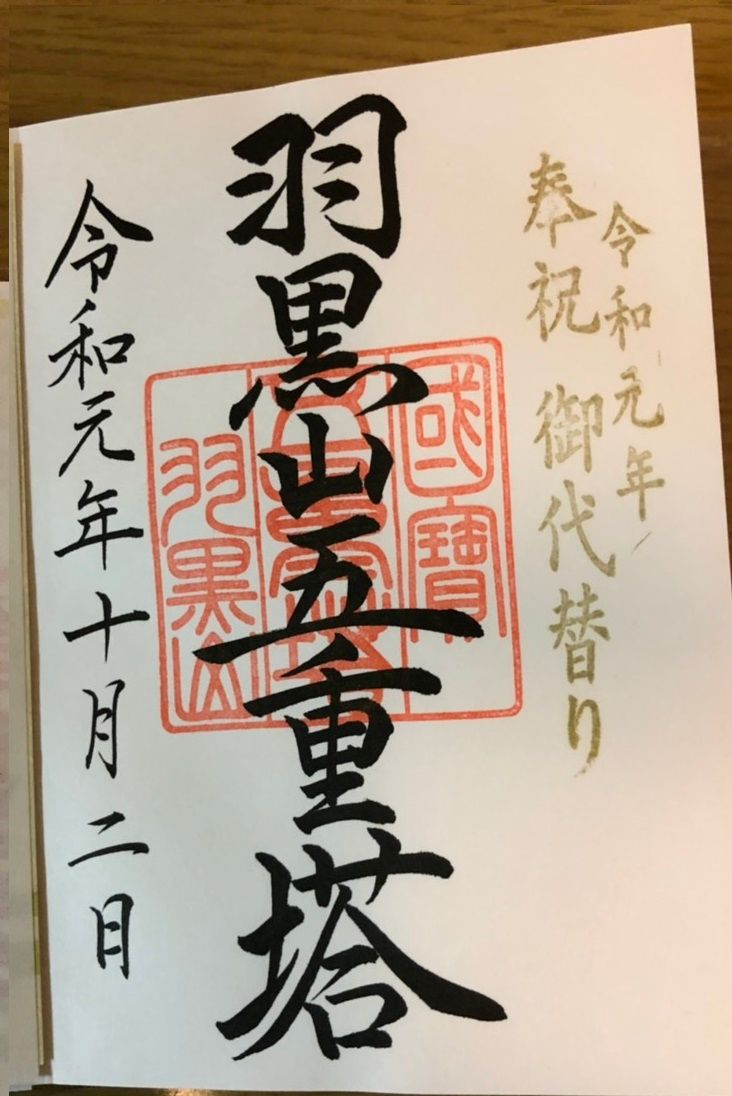 令和元年
奉祝 御代替り
羽黒山五重塔
國寶
羽黒山
令和元年十月二日